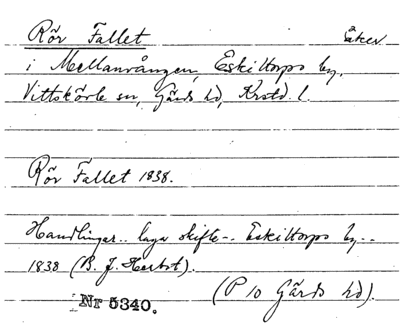 Rör Fallet åker
i Mellanvången, Eskiltorps by,
Vittskövle sn, Gärds hd, Krstd. l.
Rör Fallet 1838.
Handlingar.. laga skifte-. Eskiltorps by..
1838 (B. J. Herbst).
(P 10 Gärds hd).
Nr 5340.